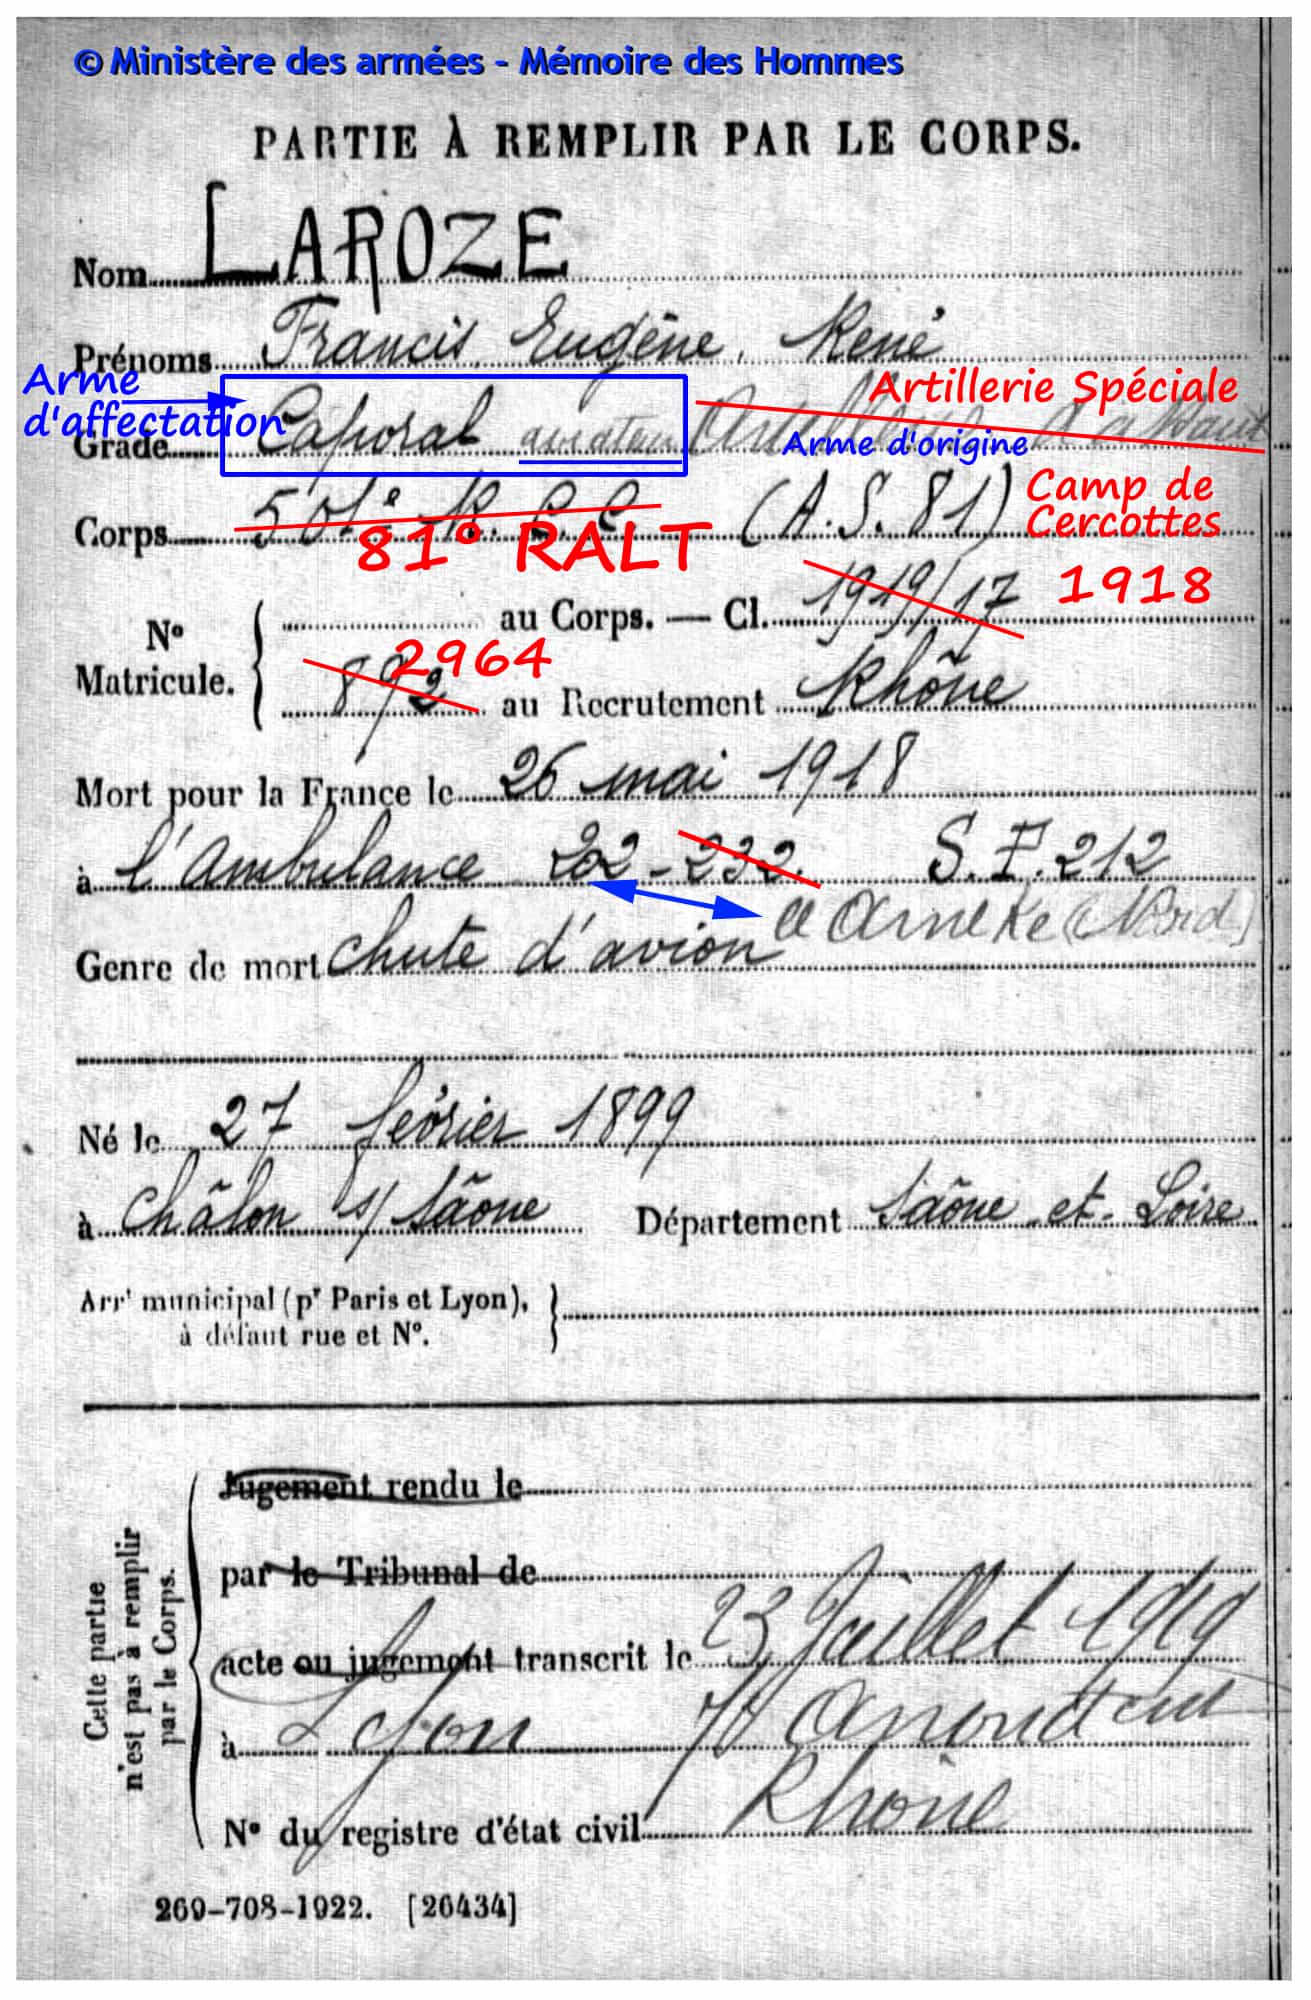 © Ministère des armées - Mémoire des Hommes
PARTIE À REMPLIR PAR LE CORPS.
Nom LAROZE
Prénoms Francis, Eugène, René
Arme
d'affectation
Grade Caporal aviateur Artillerie d'assaut
Artillerie Spéciale
Arme d'origine
Corps 501e R. C. C (A.S. 81)
81° RALT
Camp de
Cercottes
N° Matricule. { au Corps. — Cl. 1919/17
1918
892 au Recrutement Rhône
2964
Mort pour la France le 26 mai 1918
à l'Ambulance 22 - 232. S.P. 212
à Arneke (Nord)
Genre de mort chute d'avion
Né le 27 février 1899
à Châlon s/ Saône Département Saône et Loire
Arrt municipal (pr Paris et Lyon),
à défaut rue et N°.
Cette partie
n'est pas à remplir
par le Corps.
Jugement rendu le
par le Tribunal de
acte ou jugement transcrit le 23 Juillet 1919
à Lyon
Rhône
N° du registre d'état civil
269-708-1922. [26434]